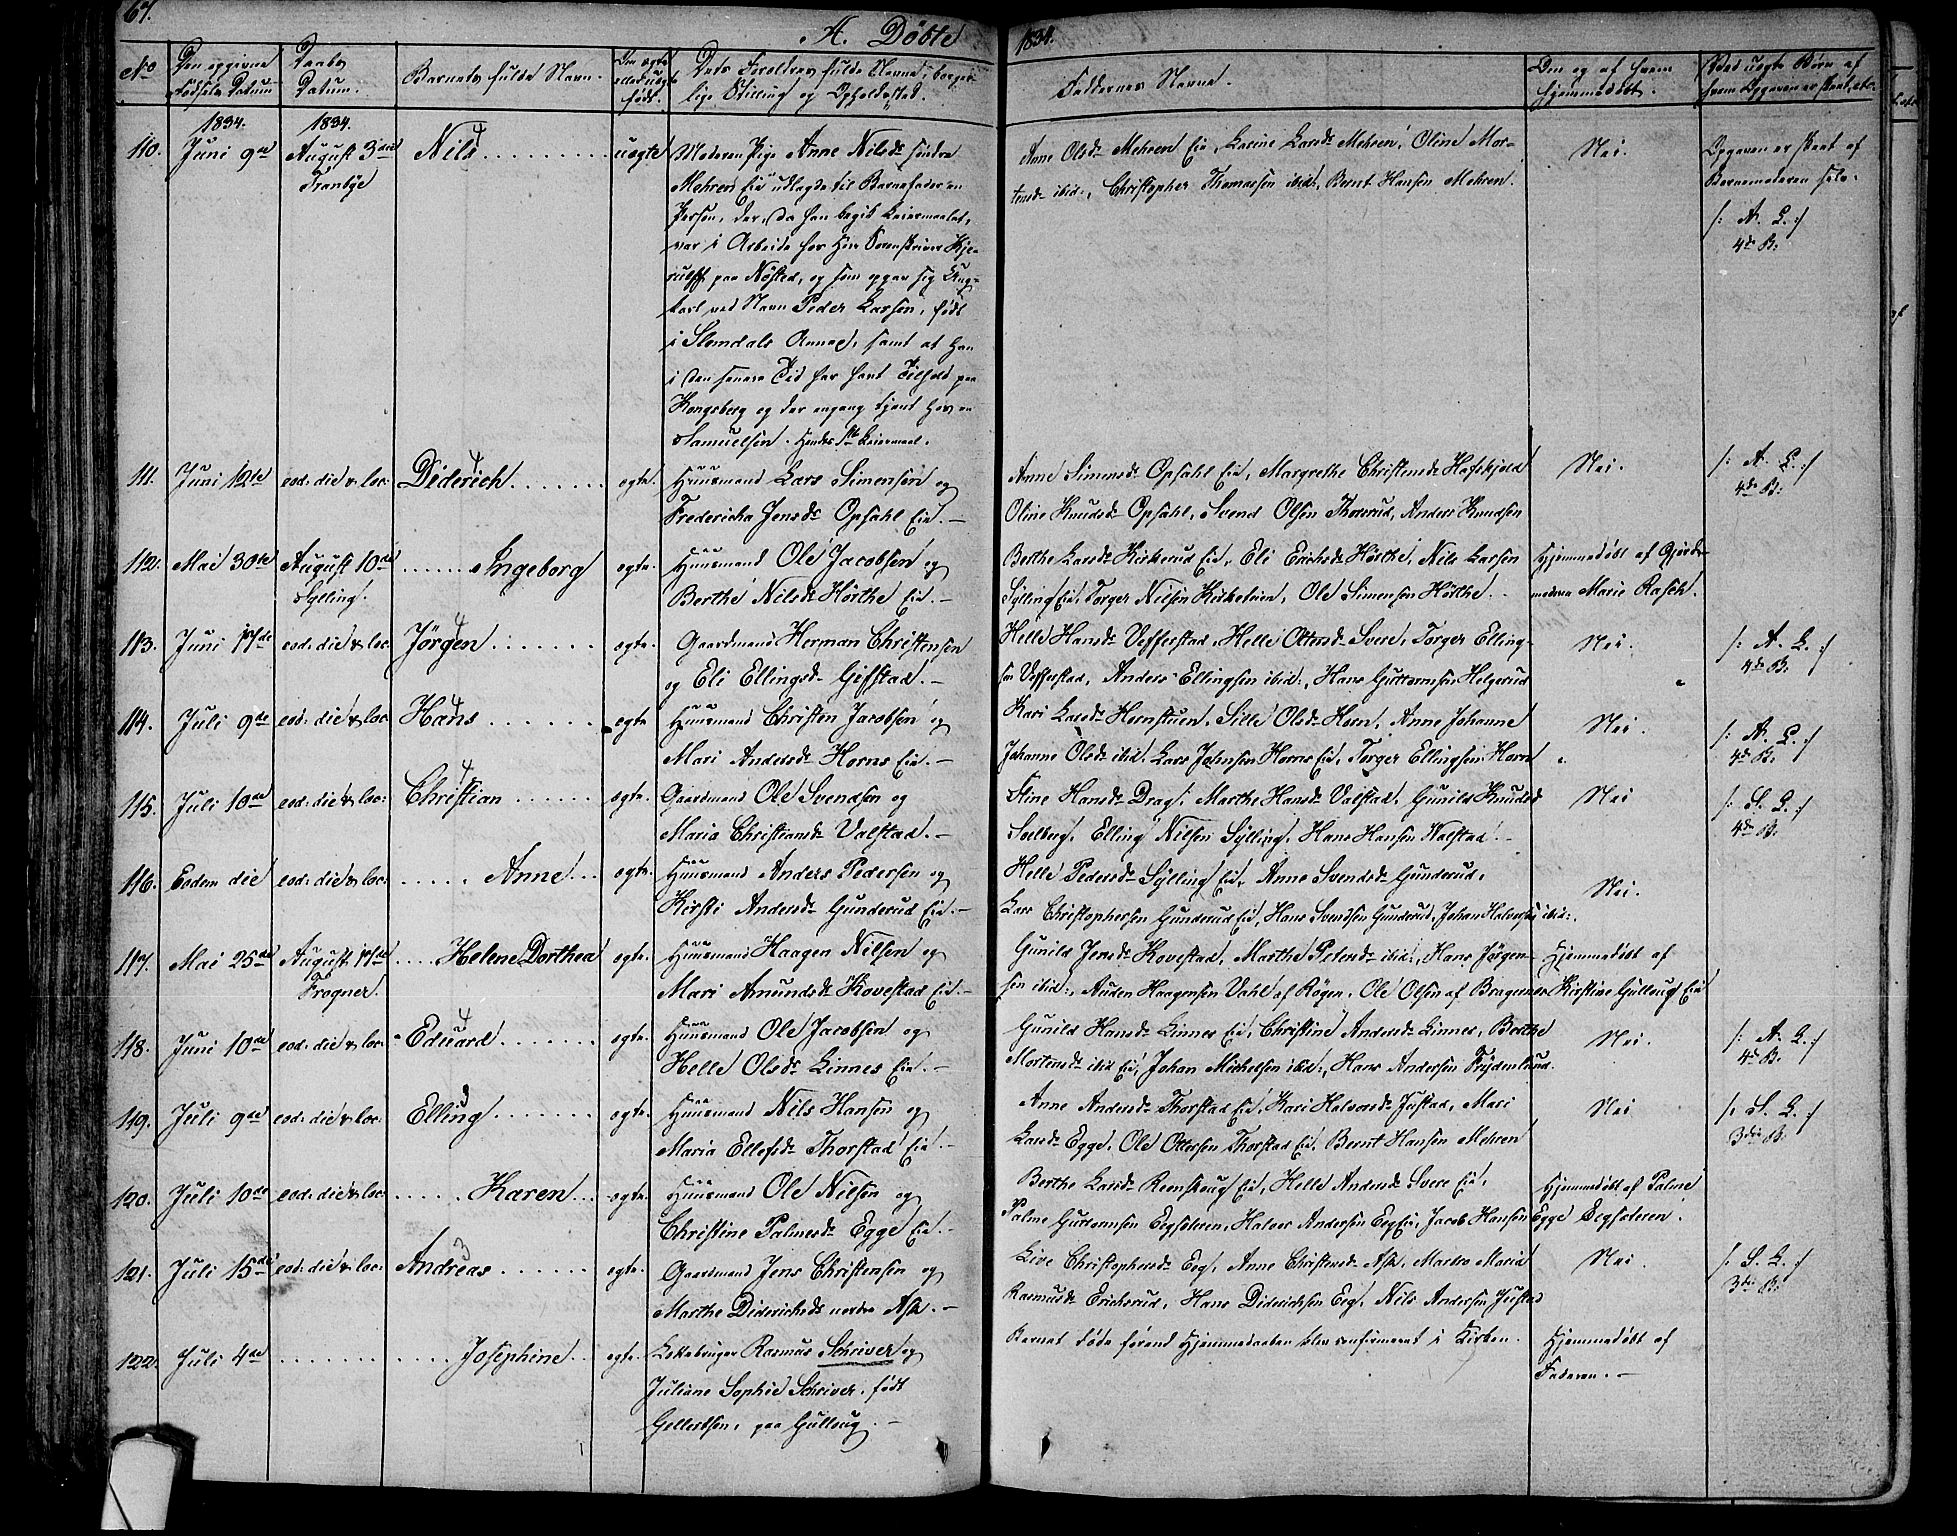 67.
A. Döbte
1834.
No
Den opgivne Fødsels Datum
Daabs Datum.
Barnets fulde Navn.
Om ægte eller uægte født.
Dets Forældres fulde Navne, borgerlige Stilling og Opholdssted.
Faddernes Navne.
Om og af hvem hjemmedøbt.
Ved uægte Børn af hvem Opgaven er skeet, etc.
110.
1834.
Juni 9de
1834.
August 3die
Tranbye
Nils
uægte
Moderen Pige Anne Nilsd: søndre
Mehren Eie udlagde til Barnefader en
Person, der, da han begik Leiermaalet,
var i Arbeide hos Herr Sorenskriver Kje-
rulff paa Nøsted, og som opgav sig Ung-
karl ved Navn Peder Larsen, født
i Slemdals Annex, samt at han
i den senere Tid har havt Tilhold paa
Kongsberg og der engang tjent hos en
Samuelsen. Hendes 1ste Leiermaal.
Anne Olsd: Mehren Eie, Karine Larsd: Mehren, Oline Mor-
tensd: ibid:, Christopher Thomassen ibid:, Bernt Hansen Mehren.
Nei.
Opgaven er skeet af
Barnemoderen selv.
/: A. L. :/
4de B:
111.
Juni 19de
eod: die & loc:
Diderich
ægte.
Huusmand Lars Simensen og
Fredericha Jensd: Opsahl Eie.
Anne Simensd: Opsahl Eie, Margrethe Christensd: Hafskjold
Oline Knudsd: Opsahl, Svend Olsen Thorsrud, Anders Knudsen
Nei.
/: A. L. :/
4de B:
112.
Mai 30te
August 10de
Sylling.
Ingeborg
ægte.
Huusmand Ole Jacobsen og
Berthe Nilsd: Hörthe Eie.
Berthe Larsd: Kirkerud Eie, Eli Erichsd: Hörthe, Nils Larsen
Sylling Eie, Torger Nilsen Kirkestuen, Ole Simensen Hörthe.
Hjemmedøbt af Gjorde-
moderen Marie Rasch.
113.
Juni 17de
eod: die & loc:
Jörgen
ægte.
Gaardmand Herman Christensen
og Eli Ellingsd: Gifstad.
Helle Hansd: Uefferstad, Helle Ottersd: Svere, Torger Elling-
sen Uefferstad, Anders Ellingsen ibid:, Hans Guttormsen Helgerud
Nei.
/: A. L. :/
4de B:
114.
Juli 9de
eod: die & loc:
Hans
ægte
Huusmand Christen Jacobsen og
Mari Andersd: Horns Eie.
Kari Larsd: Hornstuen, Sille Olsd: Horn, Anne Johanne
Johanne Olsd: ibid: Lars Johnsen Horns Eie, Torger Ellingsen Horn
Nei.
/: A. L. :/
4de B:
115.
Juli 10de
eod: die & loc:
Christian
ægte.
Gaardmand Ole Svendsen og
Maria Christiansd: Valstad.
Stine Hansd: Drag, Marthe Hansd: Valstad, Gunild Knudsd:
Solberg, Elling Nilsen Sylling, Hans Hansen Valstad.
Nei
/: S. L. :/
4de B:
116.
Eodem die
eod: die & loc:
Anne
ægte.
Huusmand Anders Pedersen og
Kirsti Andersd: Gunderud Eie.
Helle Pedersd: Sylling Eie, Anne Svendsd: Gunderud,
Lars Christophersen Gunderud Eie, Hans Svendsen Gunderud, Johan Halvorsen ibid:.
Nei.
117.
Mai 25de
August 17de
Frogner.
Helene Dorthea
ægte.
Huusmand Haagen Nilsen og
Mari Amundsd: Kovestad Eie.
Gunild Jensd: Kovestad, Marthe Petersd: ibid:, Hans Jörgen-
sen ibid:, Auden Haagensen Vahl af Røgen, Ole Olsen af Bragernes
Hjemmedøbt af
Kirstine Gulloug Eie
118.
Juni 10de
eod: die & loc:
Eduard
ægte.
Huusmand Ole Jacobsen og
Helle Olsd: Linnes Eie.
Gunild Hansd: Linnes Eie, Christine Andersd: Linnes, Berthe
Mortensd: ibid Eie, Johan Michelsen ibid:, Hans Andersen Frydenlund.
Nei.
/: A. L. :/
4de B:
119.
Juli 9de
eod: die & loc:
Elling
ægte.
Huusmand Nils Hansen og
Maria Ellefsd: Thorstad Eie.
Anne Andersd: Thorstad Eie, Kari Halvorsd: Justad, Mari
Larsd: Egge, Ole Ottersen Thorstad Eie, Bernt Hansen Mehren
Nei
/: S. L. :/
3die B:
120.
Juli 10de
eod: die & loc:
Karen
ægte.
Huusmand Ole Nilsen og
Christine Palmesd: Egge Eie.
Berthe Larsd: Reenskoug Eie, Helle Andersd: Svere Eie,
Palme Guttormsen Eegsæteren, Halvor Andersen Eeg Eie, Jacob Hansen Egge
Hjemmedøbt af Palme
Eegsæteren.
121.
Juli 15de
eod: die & loc:
Andreas
ægte.
Gaardmand Jens Christensen og
Marthe Diderichsd: nordre Ask.
Live Christophersd: Eeg, Anne Christensd: Ask, Maren Maria
Rasmusd: Erichsrud, Hans Diderichsen Eeg, Nils Andersen Justad
Nei.
/: S. L. :/
3die B:
122.
Juli 4de
Josephine
ægte.
Løkkebruger Rasmus Schriver og
Juliane Sophie Schriver, født
Gellertsen, paa Gulloug.
Barnet døde førend Hjemmedaaben blev confirmeret i Kirken.
Hjemmedøbt af
Faderen.